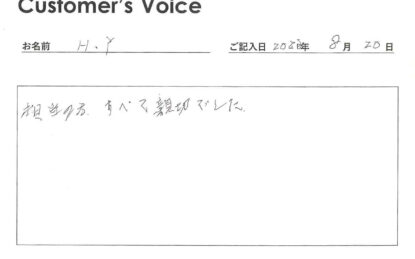 Customer's Voice
お名前 H.Y ご記入日 年 8月 20日
担当の方、すべて親切でした。